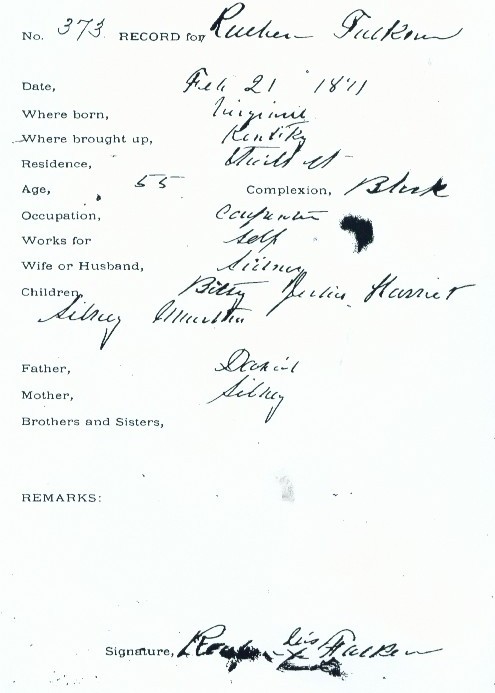 No. 373 RECORD for, Reuben Faulkon
Date, Feb 21 1871
Where born, Virginia
Where brought up, Kentiky
Residence,
Age, 55 Complexion, Black
Occupation, Carpenter
Works for self
Wife or Husband, Sidney
Children, Bitty Julia Harriet
Sidney Martha
Father, Daniel
Mother, Sidney
Brothers and Sisters,
REMARKS:
Signature, Reuben his x